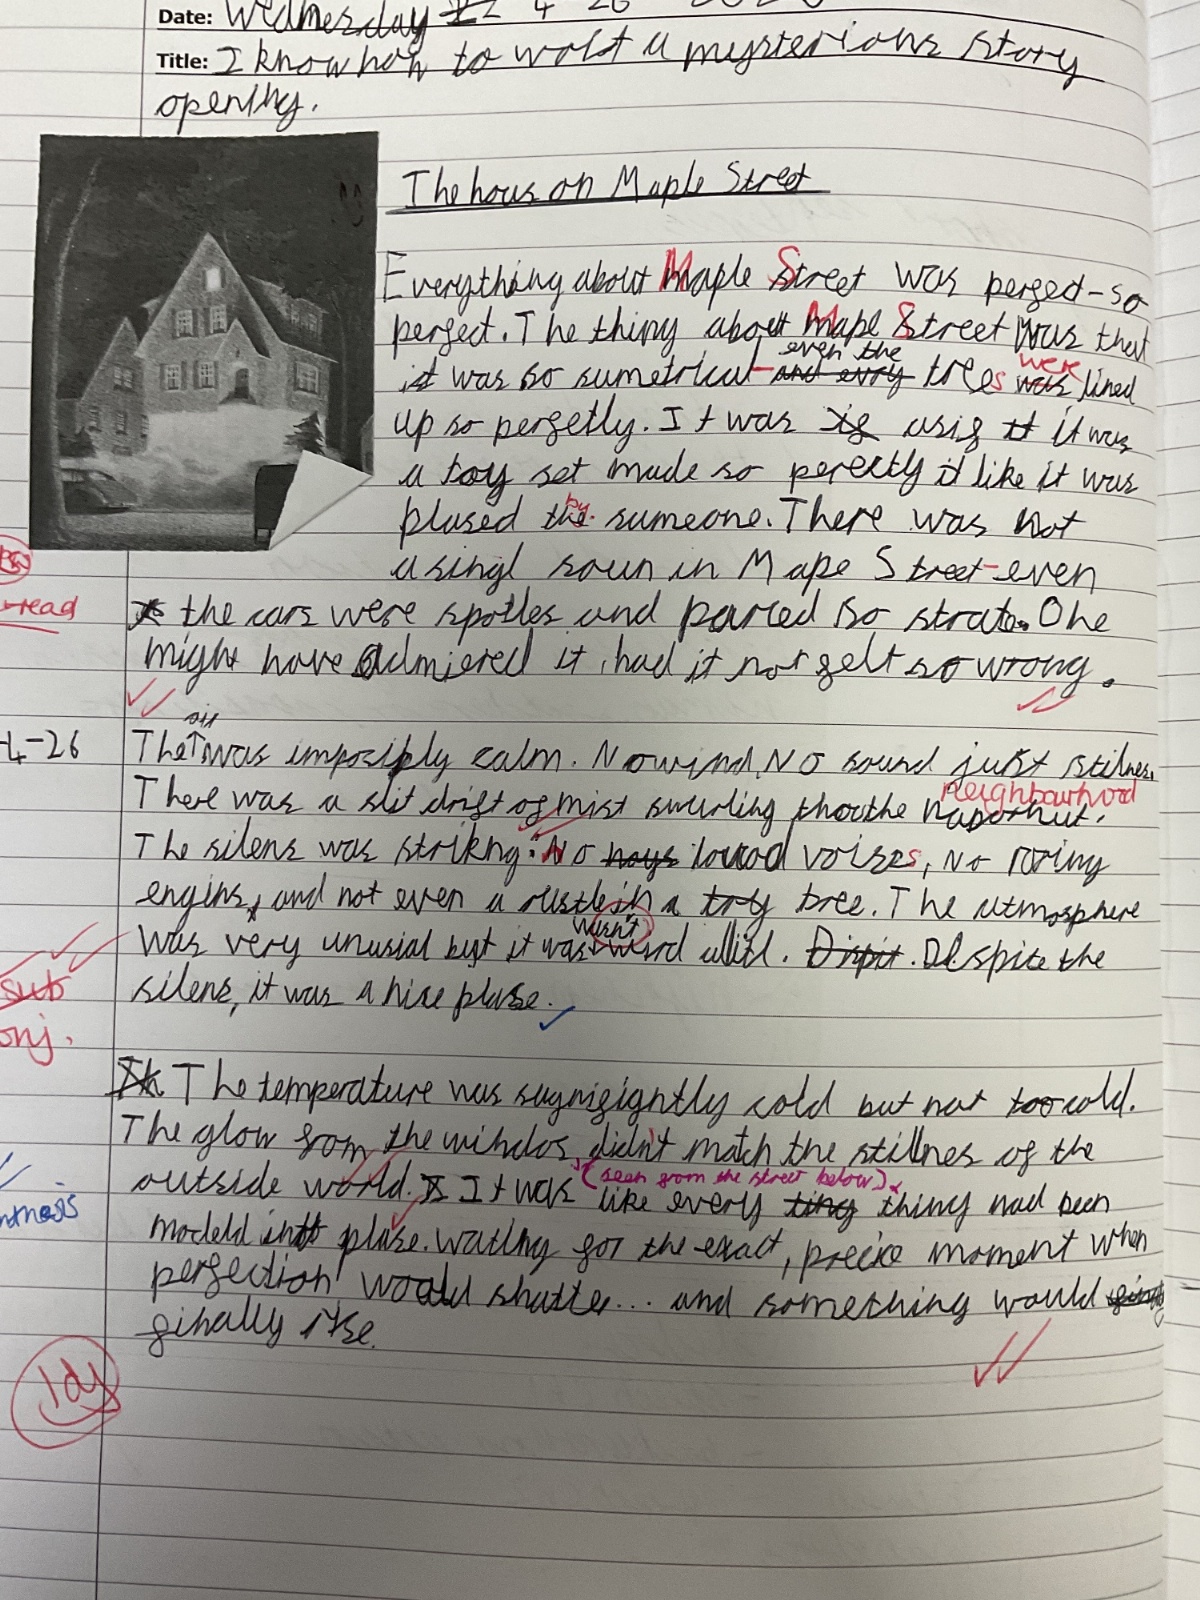 Date: Wednesday 22 4 26
Title: I know how to wold a mysterious story
opening.
The hous on Maple Street
Everything about Maple Street was perfect-so
perfect. The thing about Mape Street was that
it was so sumetrical - and evry even the trees was were lined
up so perfetly. It was as if it was
a toy set made so perectly it like it was
plased the by sumeone. There was not
a singl soun in Mape Street-even
the cars were spotles and parced so strate. One
might have admiered it, had it not felt so wrong.
-read
-4-26
The air was imposiply calm. No wind, No sound just stilnes.
There was a slit drift of mist swurling thoothe naborhut. neighbourhood
The silens was strikng: No loucod voises, No roring
engins, and not even a rustle in a try tree. The atmosphere
was very unusial but it was wasn't wierd allitl. Dispit. Despite the
silens, it was a nice plase.
sub
onj.
Th The temperature was sugnifigihtly cold but not too cold.
The glow from the windos didn't match the stillnes of the
outside world. It was (seen from the street below) like every ting thing had been
modeld into plase. Wating for the exact, precice moment when
perfection would shatter... and something would
finally rise.
1dy